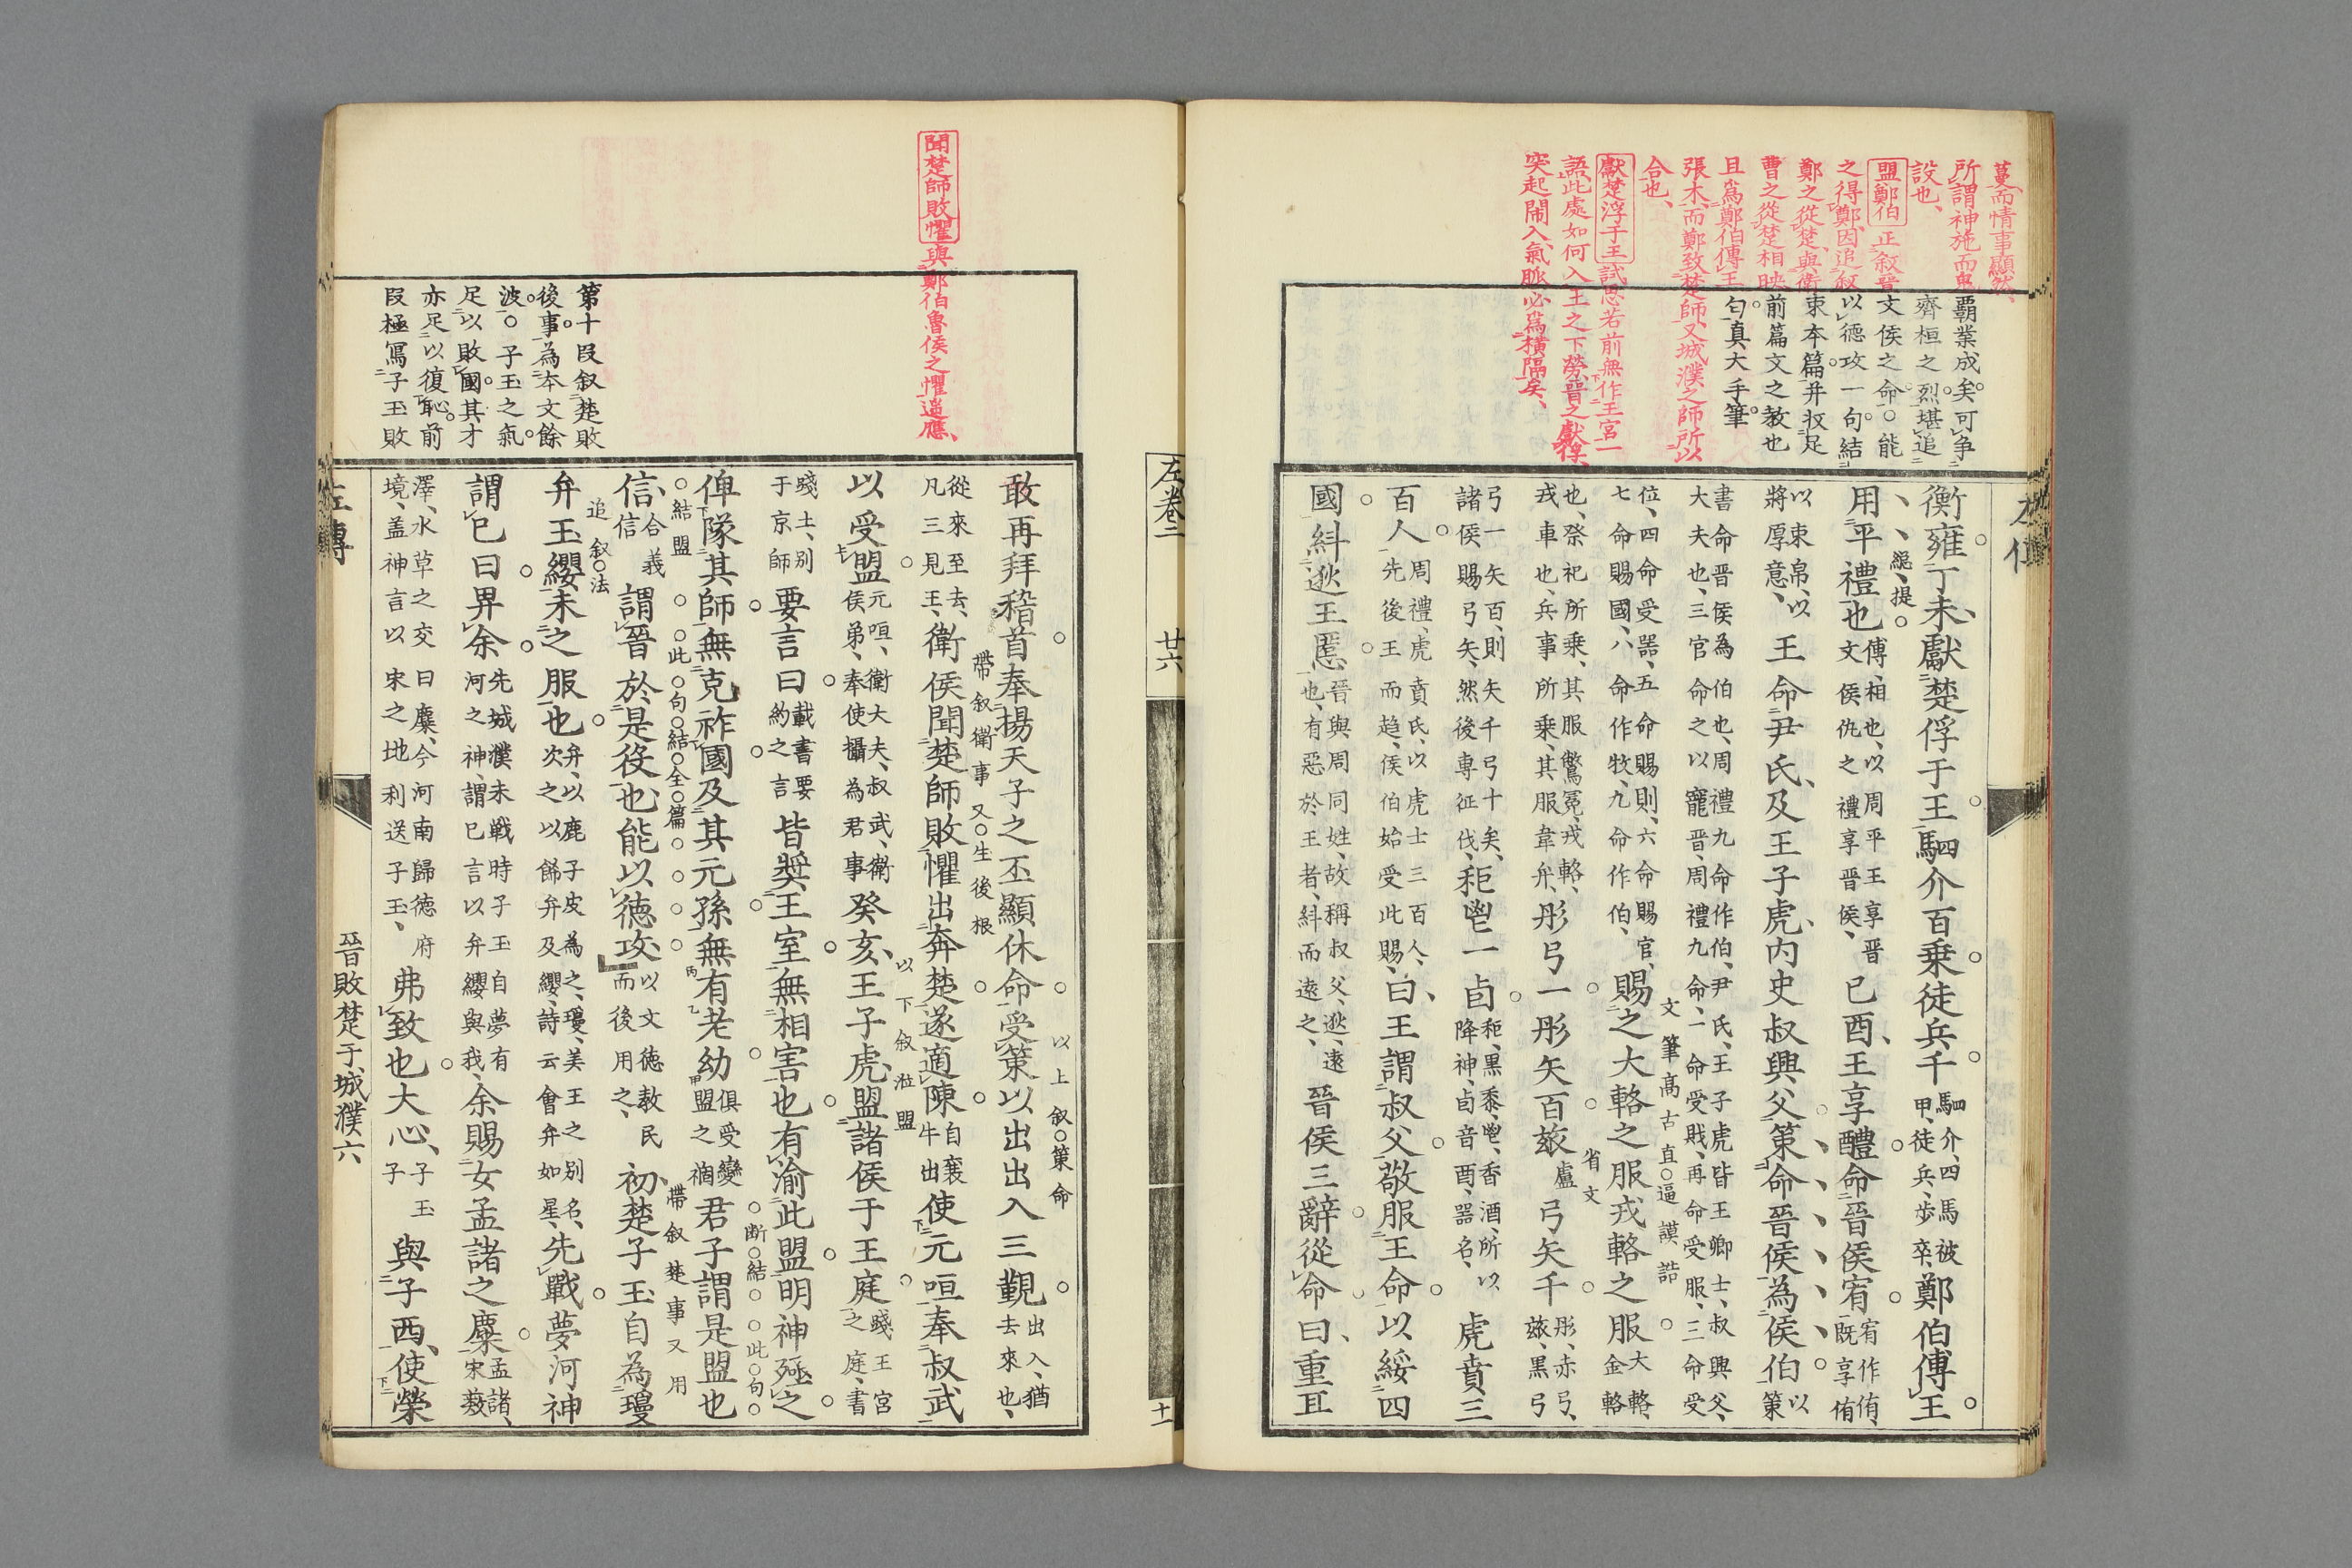 蔓而情事顯然、
所謂神施而鬼
設也、
盟鄭伯正叙晉
之得鄭、因追叙
鄭之從楚、與衛
曹之從楚相映
且爲鄭伯傳王
張本、而鄭致楚師、又城濮之師所以
合也、
獻楚浮于王試思若前無作王宮一
語、此處如何入王之下勞、晉之獻俘、
突起鬧入、氣脈必爲横隔矣、
覇業成矣可争
齊桓之烈堪追
文侯之命○能
以徳攻一句結
束本篇并收足
前篇文之敎也
句真大手筆
衡雍丁未獻楚俘于王駟介百乗徒兵千
駟介、四馬被
甲、徒兵、歩卒、
鄭伯傅王
用平禮也
傅、相也、以周平王享晋
文侯仇之禮享晋侯、
已酉、王享醴命晉侯宥
宥作侑、
既享侑
以束帛、以
將厚意、
王命尹氏、及王子虎、内史叔興父策命晉侯為侯伯
以
策
書命晋侯為伯也、周禮九命作伯、尹氏、王子虎皆王卿士、叔興父、
大夫也、三官命之以寵晋、周禮九命、一命受賎、再命受服、三命受
位、四命受噐、五命賜則、六命賜官、
七命賜國、八命作牧、九命作伯、
賜之大輅之服戎輅之服
大輅、
金輅
也、祭祀所乗、其服鷩冕、戎輅、
戎車也、兵事所乗、其服韋弁、
彤弓一彤矢百玈弓矢千
彤、赤弓、
玈、黒弓
弓一矢百、則矢千弓十矣、
諸侯賜弓矢、然後専征伐、
秬鬯一卣
秬、黒黍、鬯、香酒、所以
降神、卣音酉、噐名、
虎賁三
百人
周禮、虎賁氏、以虎士三百人、
先後王而趋、侯伯始受此賜、
曰、王謂叔父敬服王命以綏四
國糾逖王慝
晋與周同姓、故稱叔父、逖、遠
也、有惡於王者、糾而遠之、
晉侯三辭從命曰、重耳
總提
文筆高古直逼謨誥
省文
左卷二
廿六
十一
聞楚師敗懼與鄭伯魯侯之懼遥應、
第十叚叙楚敗
後事為本文餘
波○子玉之氣
足以敗國其才
亦足以復恥前
叚極冩子玉敗
敢再拜稽首奉揚天子之丕顯休命受策以出出入三覲
出入、猶
去來也、
從來至去、
凡三見王、
衛侯聞楚師敗懼出奔楚遂適陳
自襄
牛出
使元咺奉叔武
以受盟
元咺、衛大夫、叔武、衛
侯弟、奉使攝為君事
癸亥、王子虎盟諸侯于王庭
踐王宮
之庭、書
踐土、别
于京師
要言曰
載書要
約之言
皆奬王室無相害也有渝此盟明神殛之
俾隊其師無克祚國及其元孫無有老幼
俱受變
盟之禍
君子謂是盟也
信
合義
信
謂晉於是役也能以徳攻
以文徳敎民
而後用之、
初楚子玉自為瓊
弁玉纓未之服也
弁、以鹿子皮為之、瓊、美玉之别名、
次之以飾弁及纓、詩云會弁如星、
先戰夢河神
謂已曰畀余
先城濮未戰時子玉自夢有
河之神、謂已言以弁纓與我、
余賜女孟諸之麋
孟諸、
宋薮
澤、水草之交曰麋、今河南歸徳府
境、盖神言以宋之地利送子玉、
弗致也大心、
子玉
子
與子西、使榮
以上叙策命
帶叙衛事又生後根
以下叙涖盟
断結此句
結盟此句結全篇
帶叙楚事又用
追叙法
左傳
晉敗楚于城濮六